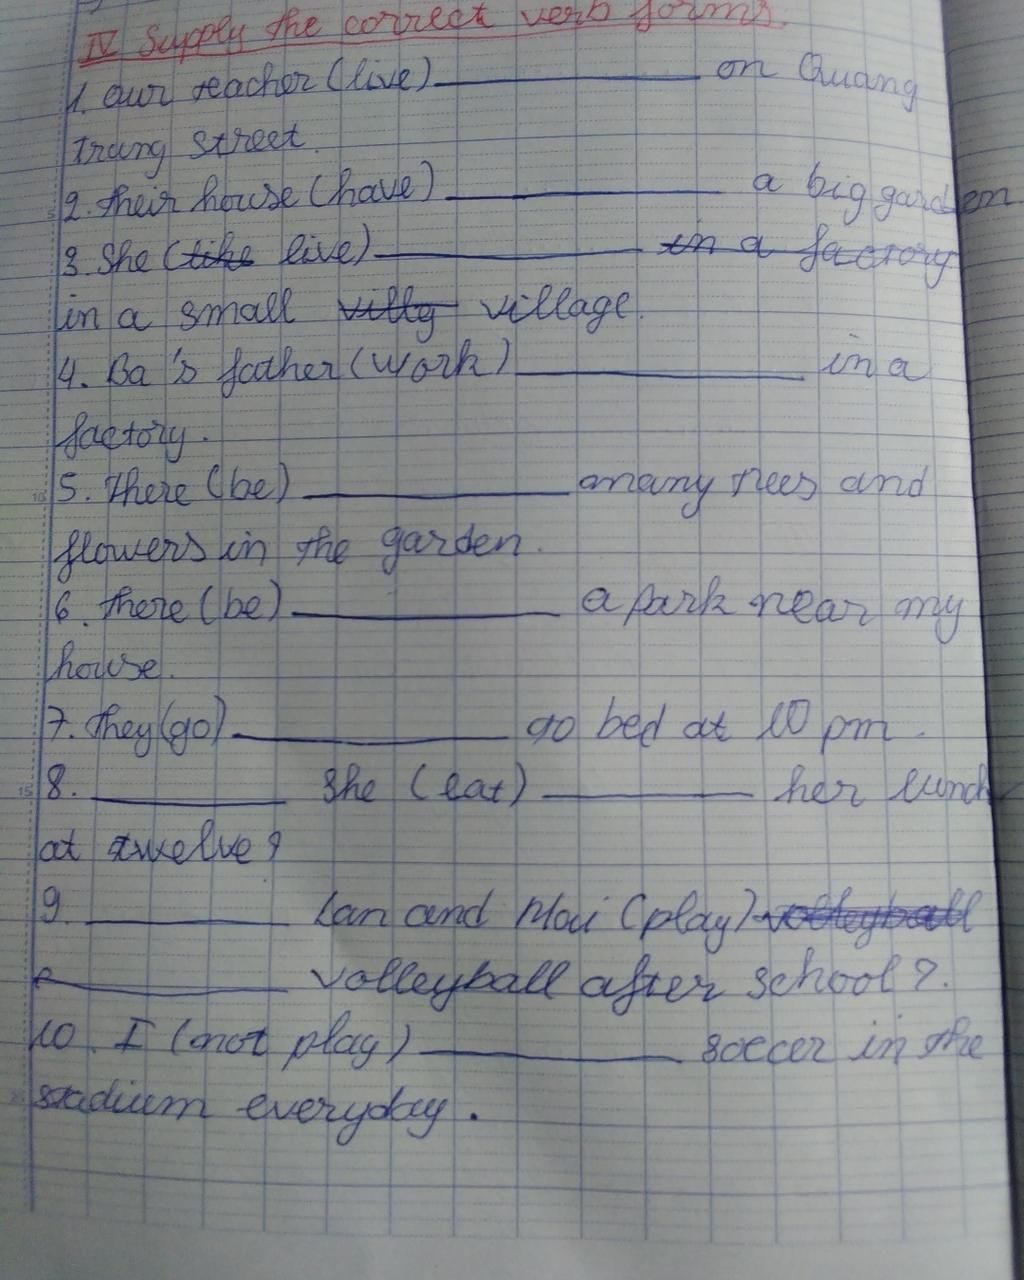 IV Supply the correct verb forms.
1. Our teacher (live) __________ on Quang
Trung street.
2. Their house (have) __________ a big garden.
3. She (like live) __________ in a factory
in a small villg village.
4. Ba's father (work) __________ in a
factory.
5. There (be) __________ many trees and
flowers in the garden.
6. There (be) __________ a park near my
house.
7. They (go) __________ to bed at 10 pm.
8. __________ She (eat) __________ her lunch
at twelve?
9. __________ Lan and Mai (play) volleyball
__________ volleyball after school?
10. I (not play) __________ soccer in the
stadium everyday.